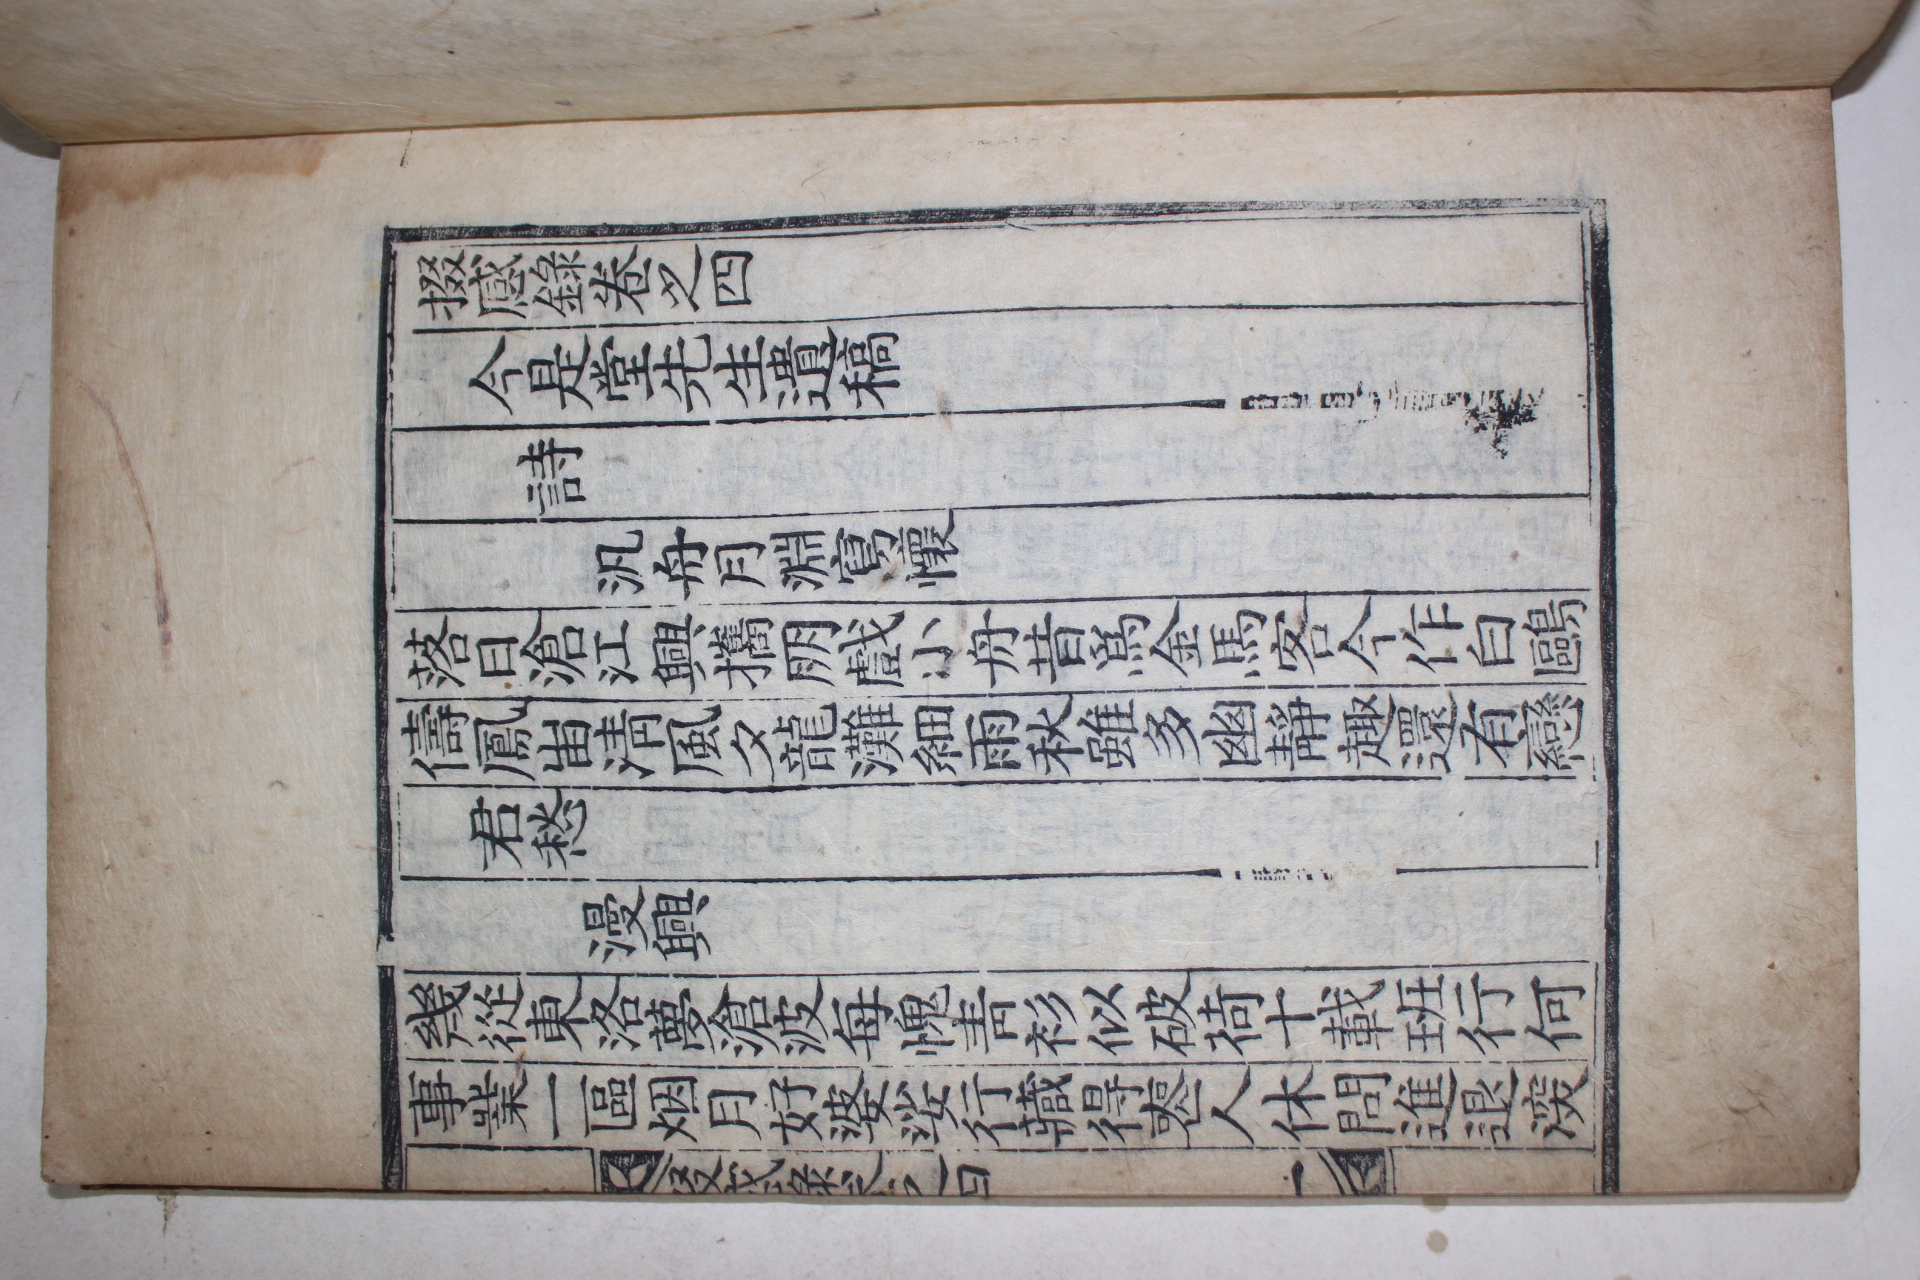 掇感錄卷之四
今是堂先生遺稿
詩
汎舟月淵寫懷
落日滄江興攜朋戲小舟昔爲金馬客今作白鷗
儔鳳峀淸風夕龍灘細雨秋雖多幽靜趣還有戀
君愁
漫興
幾從東洛夢滄波每愧靑衫似破荷十載班行何
事業一區烟月好婆娑行藏得喪人休問進退深